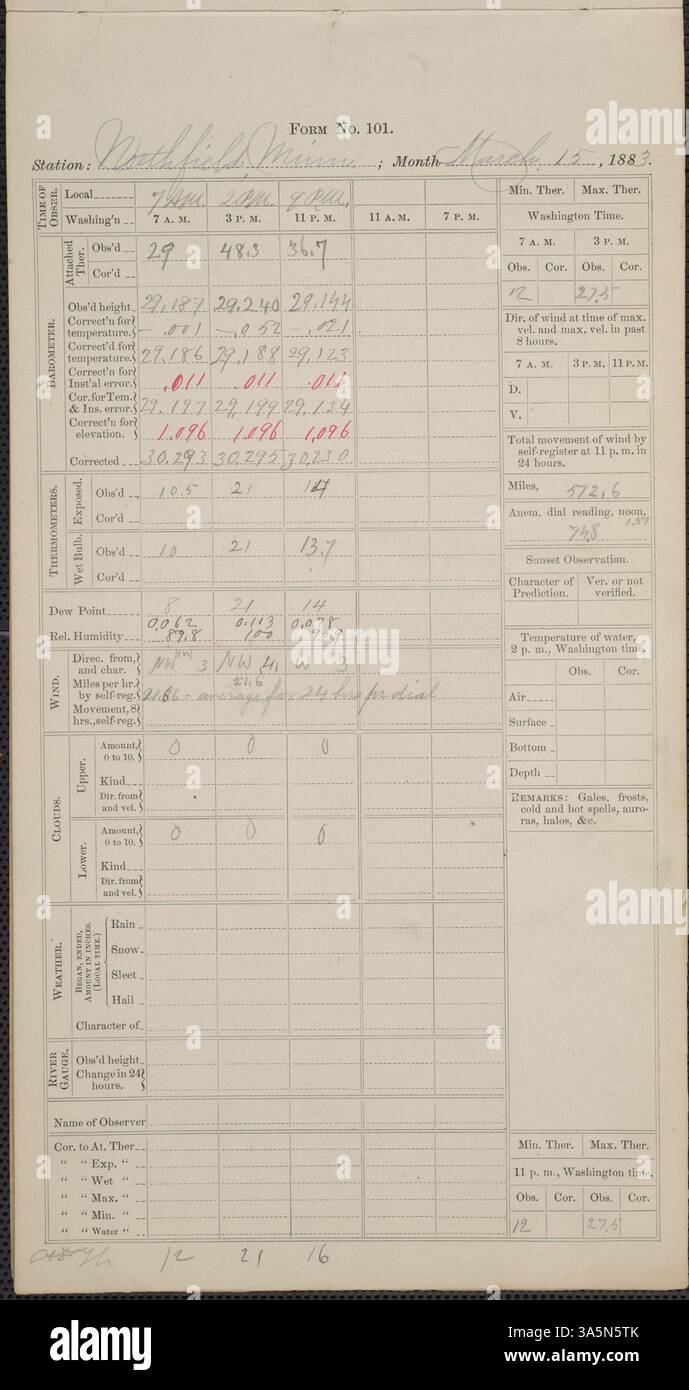 Form No. 101.
Station: Northfield, Minn. ; Month March 15, 1883.
TIME OF OBSER.
Local 7 A.M. 2 P.M. 9 P.M.
Washing'n 7 A. M. 3 P. M. 11 P. M. 11 A. M. 7 P. M.
BAROMETER.
Attached Ther.
Obs'd 29 48.3 36.7
Cor'd
Obs'd height 29.187 29.240 29.144
Correct'n for temperature. -.001 -.052 -.021
Correct'd for temperature. 29.186 29.188 29.123
Correct'n for Inst'al error. .011 .011 .011
Cor. for Tem. & Ins. error. 29.197 29.199 29.134
Correct'n for elevation. 1.096 1.096 1.096
Corrected 30.293 30.295 30.230
THERMOMETERS.
Exposed.
Obs'd 10.5 21 14
Cor'd
Wet Bulb.
Obs'd 10 21 13.7
Cor'd
Dew Point 8 21 14
0.062 0.113 0.078
Rel. Humidity 89.8 100
WIND.
Direc. from, and char. NW 3 NW 4, W 3
21.6
Miles per hr. by self-reg. = average for 24 hrs pr dial
Movement, 8 hrs., self-reg.
CLOUDS.
Upper.
Amount, 0 to 10. 0 0 0
Kind
Dir. from and vel.
Lower.
Amount, 0 to 10. 0 0 0
Kind
Dir. from and vel.
WEATHER.
BEGAN, ENDED, AMOUNT IN INCHES. (LOCAL TIME.)
Rain
Snow
Sleet
Hail
Character of
RIVER GAUGE.
Obs'd height
Change in 24 hours.
Name of Observer
Cor. to At. Ther
" " Exp. "
" " Wet "
" " Max. "
" " Min. "
" " Water "
12 21 16
Min. Ther. Max. Ther.
Washington Time.
7 A. M. 3 P. M.
Obs. Cor. Obs. Cor.
12 27.5
Dir. of wind at time of max. vel. and max. vel. in past 8 hours.
7 A. M. 3 P. M. 11 P. M.
D.
V.
Total movement of wind by self-register at 11 p. m. in 24 hours.
Miles, 512.6
Anem. dial reading, noon,
748
Sunset Observation.
Character of Prediction. Ver. or not verified.
Temperature of water, 2 p. m., Washington time.
Obs. Cor.
Air
Surface
Bottom
Depth
REMARKS: Gales, frosts, cold and hot spells, auroras, halos, &c.
Min. Ther. Max. Ther.
11 p. m., Washington time.
Obs. Cor. Obs. Cor.
12 27.5
alamy
alamy
Image ID: 3A5N5TK
www.alamy.com